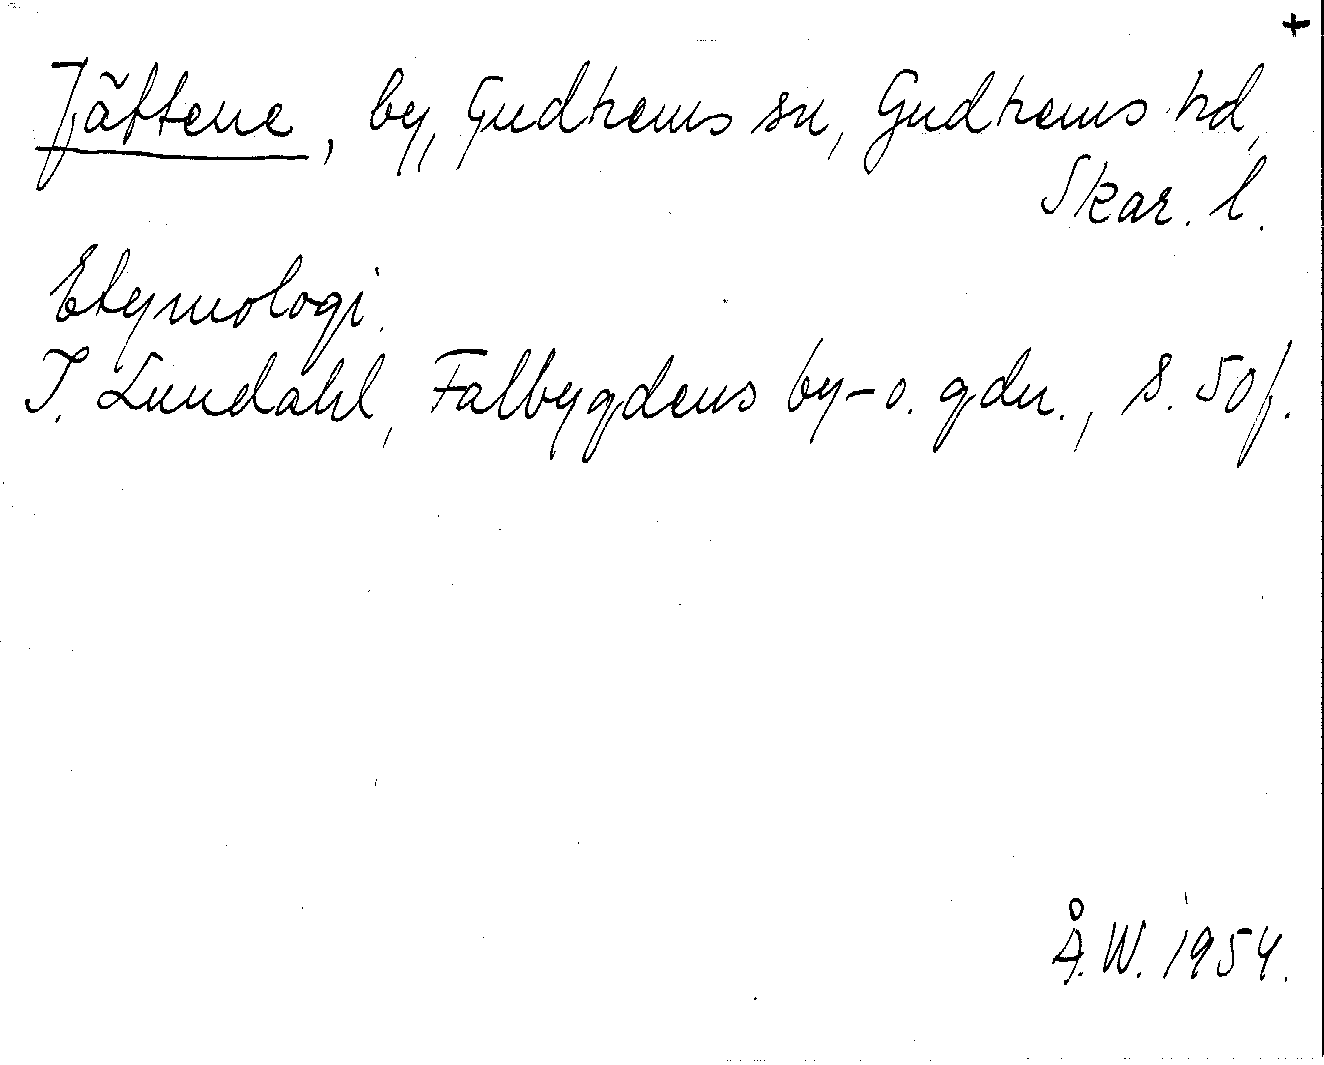 +
Jättene, by, Gudhems sn, Gudhems hd,
Skar. l.
Etymologi.
I. Lundahl, Falbygdens by- o. gdn., s. 50 f.
Å.W. 1954.